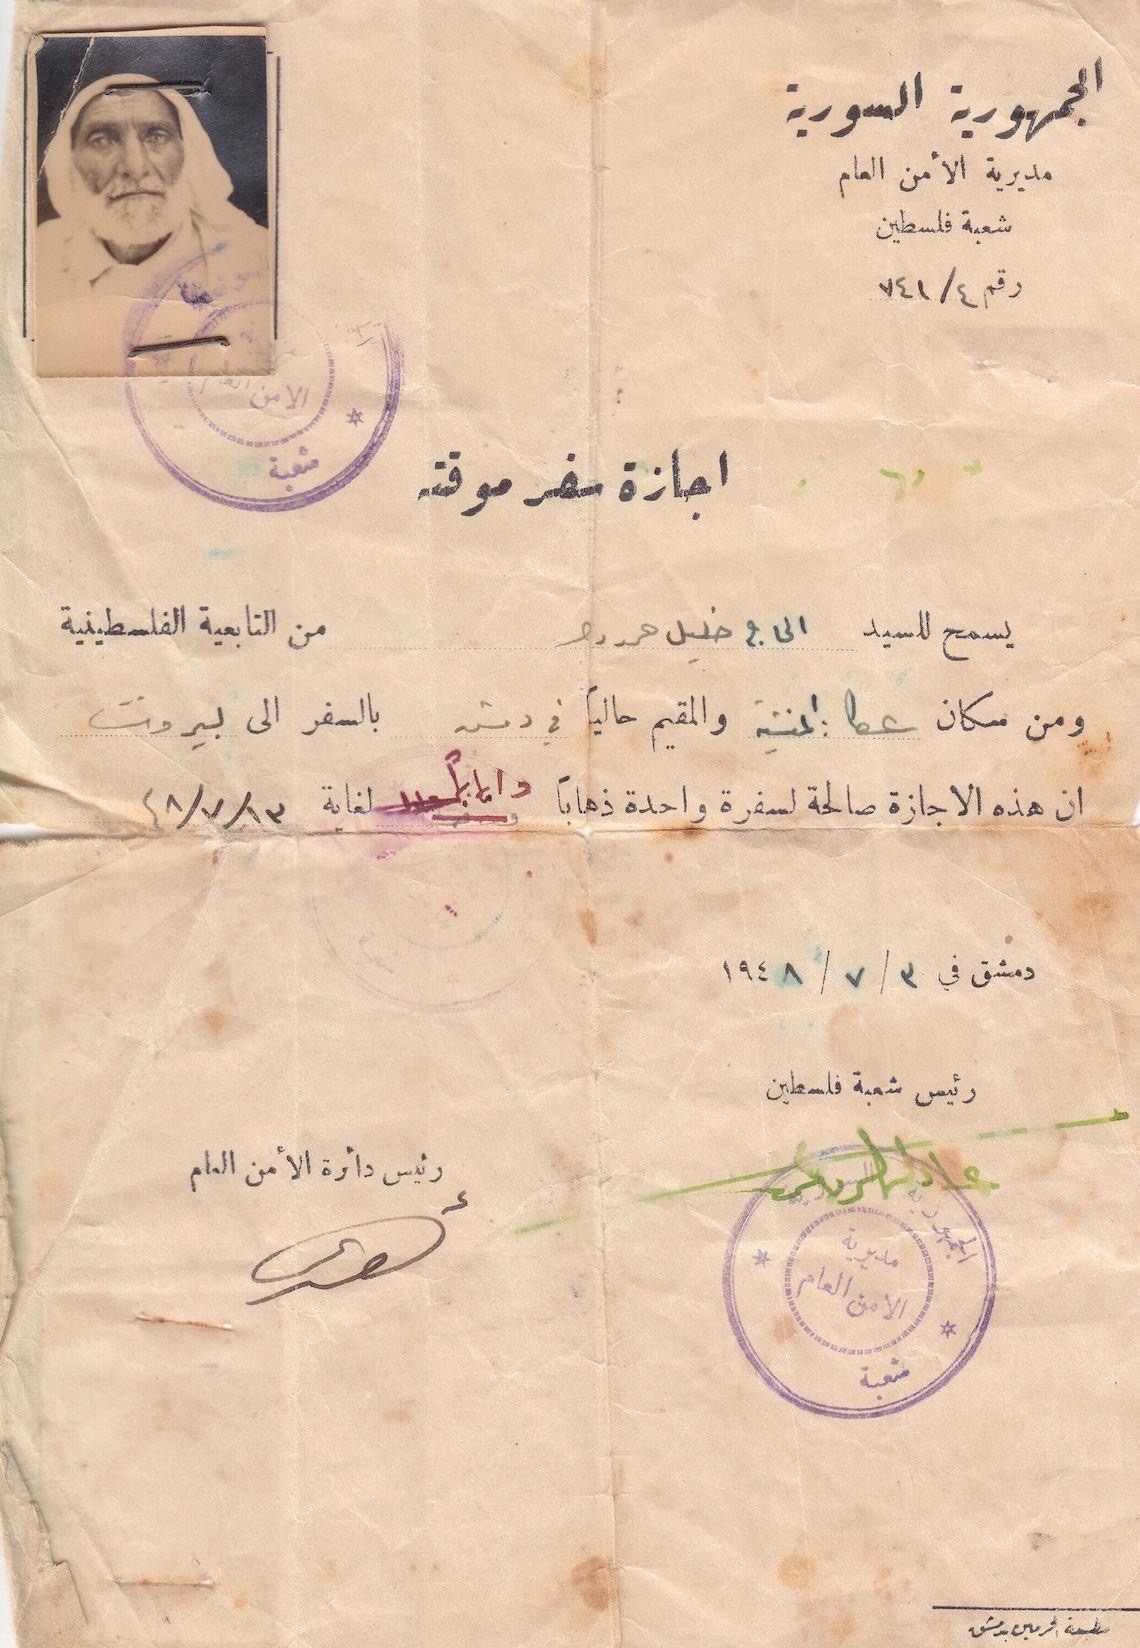 الجمهورية السورية
مديرية الأمن العام
شعبة فلسطين
رقم ٧٤١/٤
الامن العام
شعبة
اجازة سفر موقته
يسمح للسيد الحاج خليل من التابعية الفلسطينية
ومن سكان عكا : المنشية والمقيم حالياً في دمشق بالسفر الى بيروت
ان هذه الاجازة صالحة لسفرة واحدة ذهاباً واياباً لغاية ١٣/٧/٤٨
دمشق في ٣ / ٧ / ١٩٤٨
رئيس شعبة فلسطين
رئيس دائرة الأمن العام
الجمهورية السورية
مديرية
الامن العام
شعبة